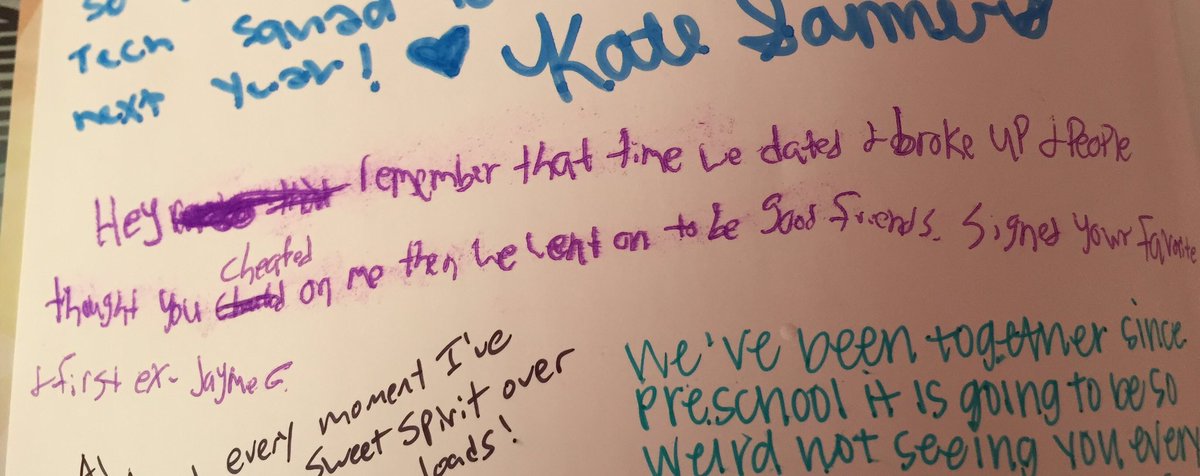 so
Tech Squad
next Yuar! Kate Sanners
Hey remember that time we dated & broke up & People
cheated
thought you on me then we went on to be good friends. Signed your favorite
& first ex- Jayme G.
every moment I've
sweet spirit over
loads!
We've been together since
preschool it is going to be so
weird not seeing you every